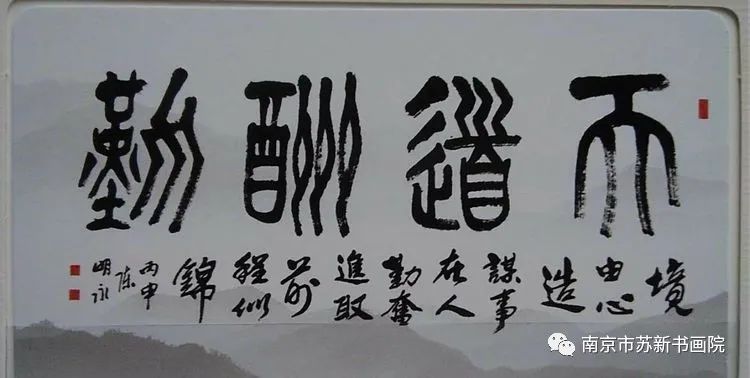 天道酬勤
境由心造
謀事在人
勤奮進取
前程似錦
丙申
陈明永
南京市苏新书画院